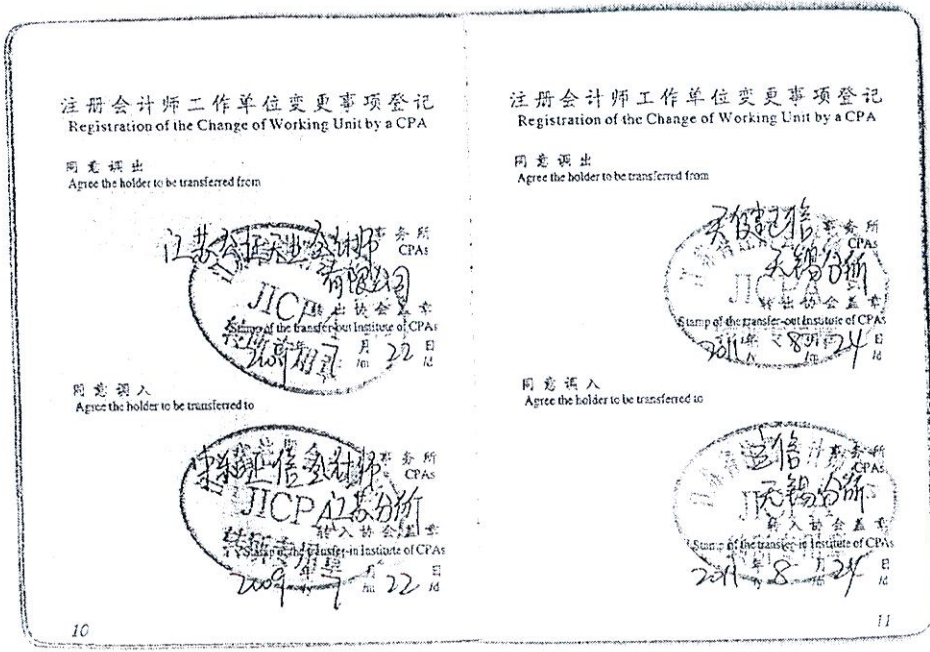 注册会计师工作单位变更事项登记
Registration of the Change of Working Unit by a CPA
同意调出
Agree the holder to be transferred from
江苏公证天业会计师事务所
有限公司
CPAs
JICPA
转出协会盖章
Stamp of the transfer-out Institute of CPAs
2009年 7 月 22 日
/y /m /d
同意调入
Agree the holder to be transferred to
正信会计师事务所
CPAs
JICPA
江苏分所
转入协会盖章
Stamp of the transfer-in Institute of CPAs
2009 7 月 22 日
/m /d
10
注册会计师工作单位变更事项登记
Registration of the Change of Working Unit by a CPA
同意调出
Agree the holder to be transferred from
天健正信事务所
CPAs
无锡分所
转出协会盖章
Stamp of the transfer-out Institute of CPAs
2011年 8月 24日
/y /m /d
同意调入
Agree the holder to be transferred to
事务所
CPAs
无锡分所
转入协会盖章
Stamp of the transfer-in Institute of CPAs
2011年 8月 24日
/y /m /d
11